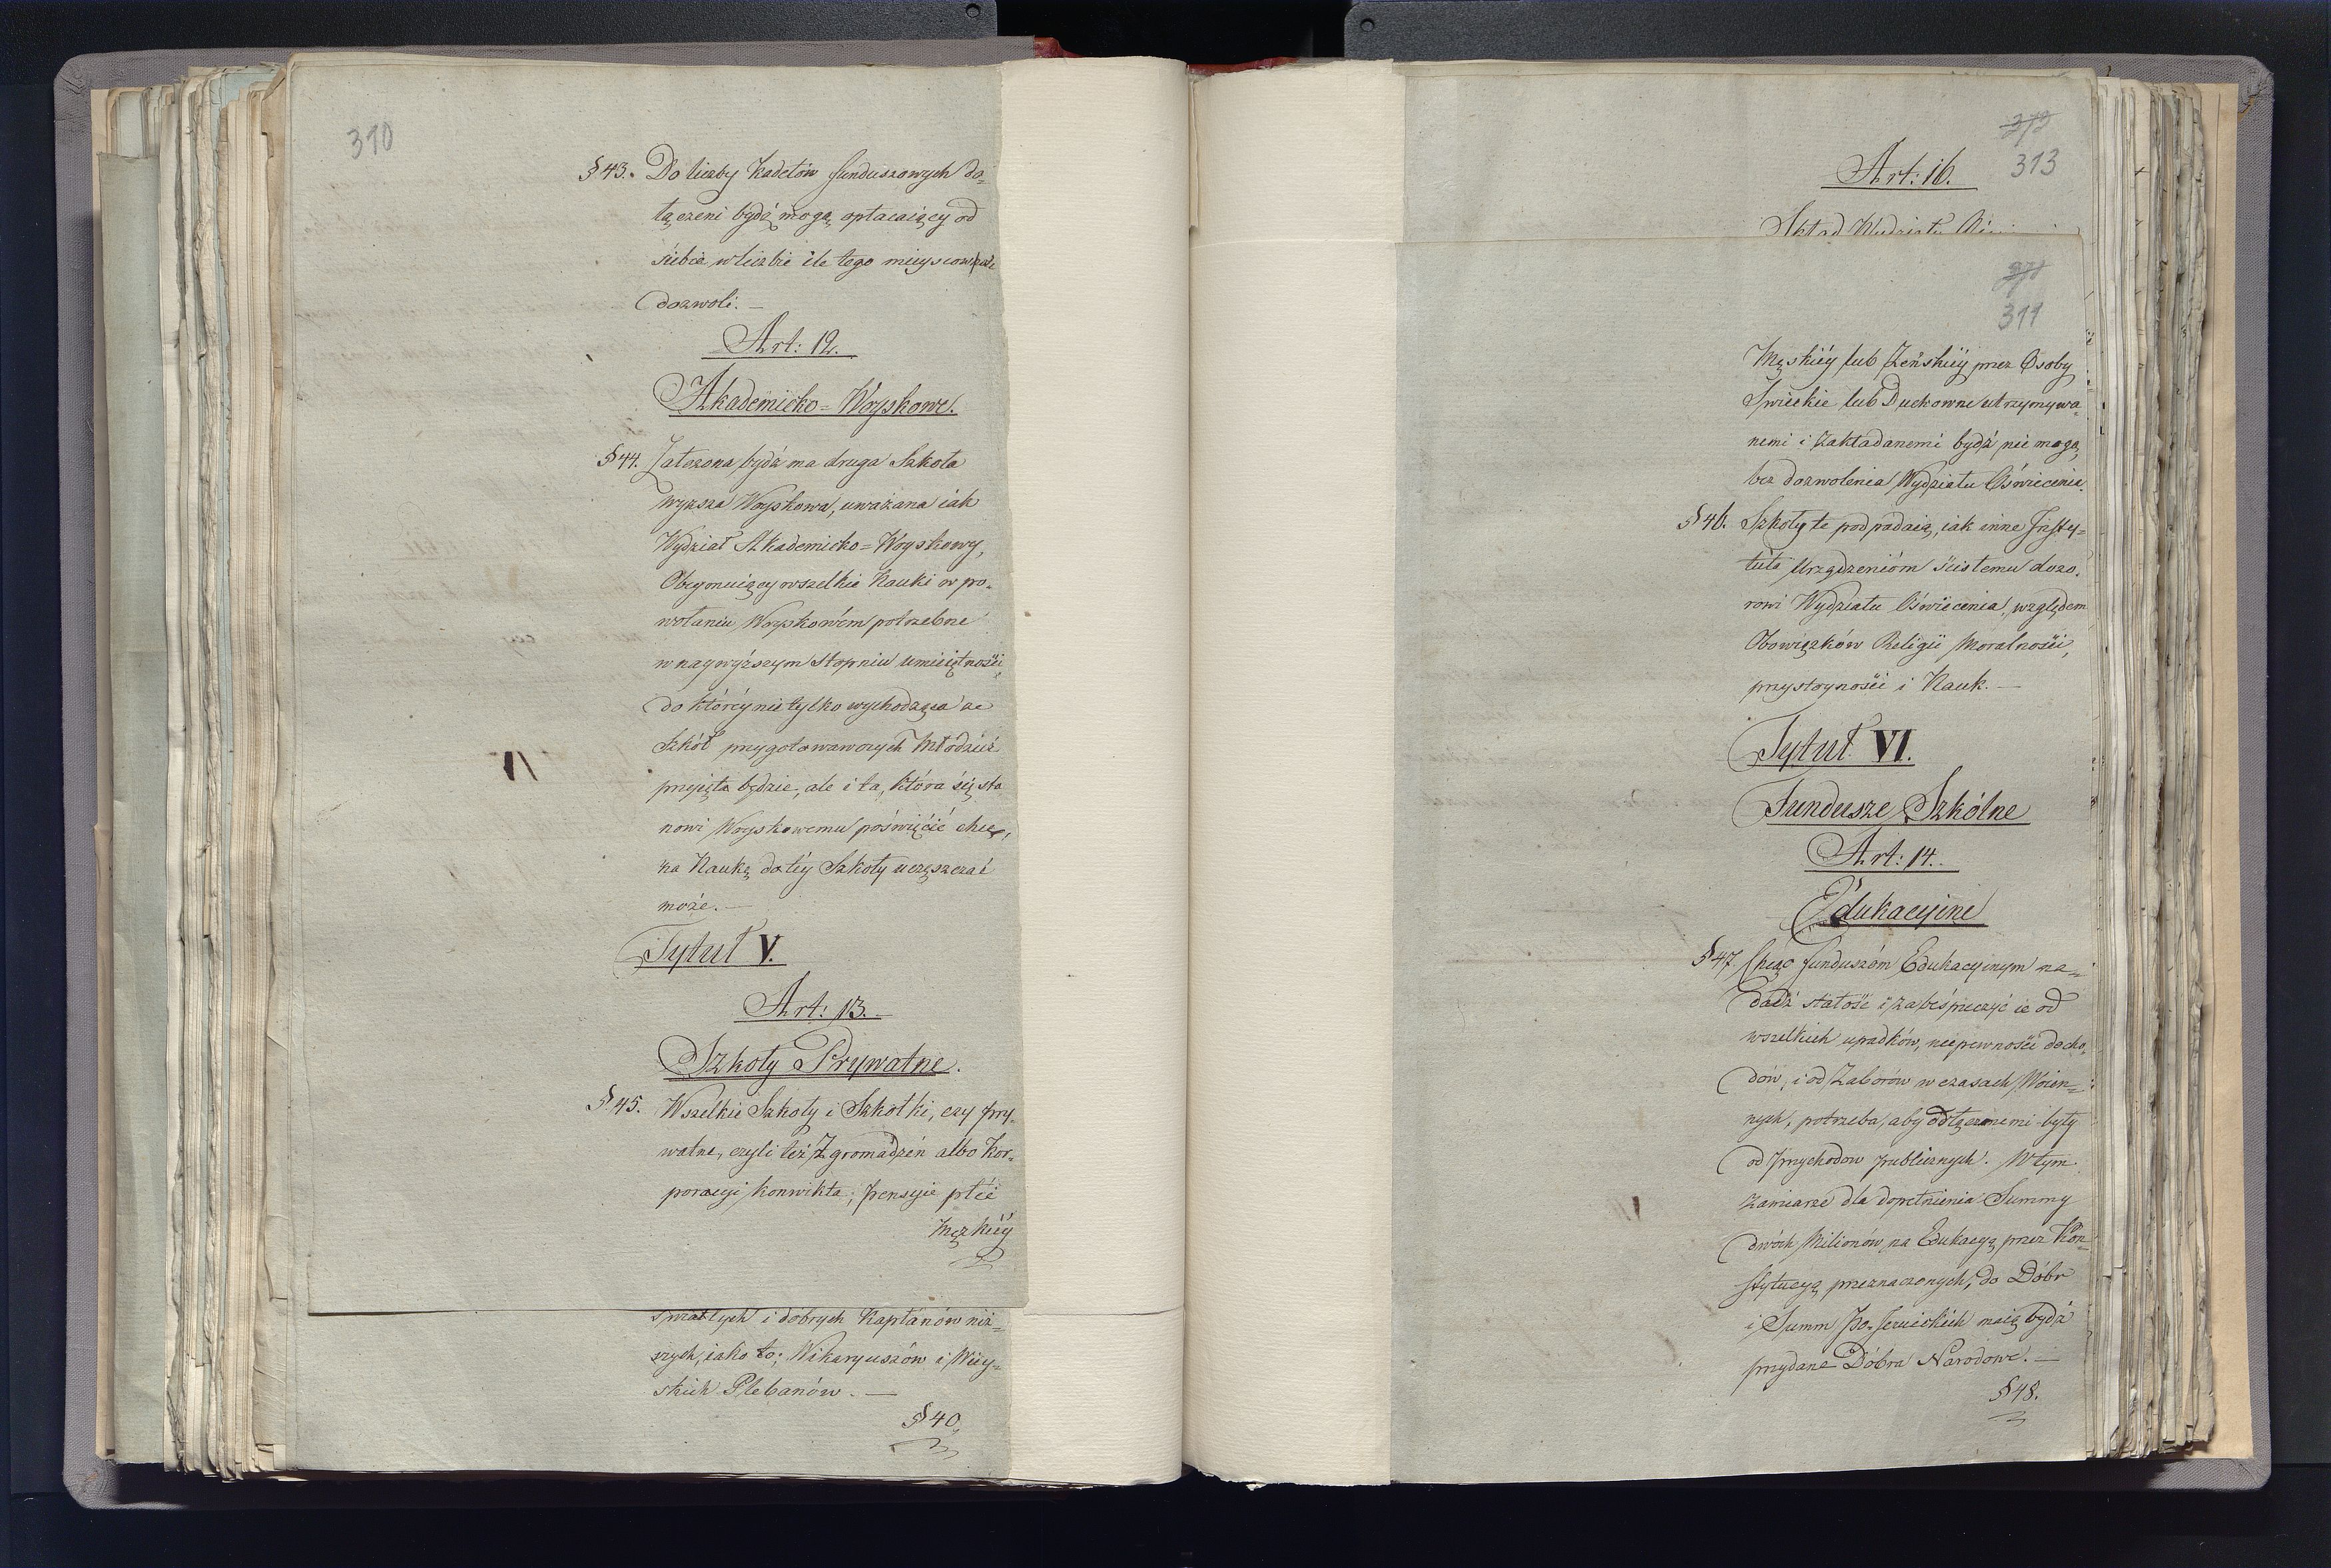 310
§ 43. Do liczby Kadetów funduszowych do-
łączeni bydź mogą opłacaiący od
siebie w liczbie ile tego mieysce
dozwoli. —
Art: 12.
Akademicko=Woyskowe.
§ 44. Założona bydź ma druga Szkoła
wyższa Woyskowa, uważana iak
Wydział Akademicko=Woyskowy,
Obeymuiący wszelkie Nauki w po-
wołaniu Woyskowém potrzebne
w naywyższym Stopniu umieiętności,
do któréy nie tylko wychodząca ze
Szkół przygotowawczych Młodzież
przyięta będzie, ale i ta, która się sta
nowi Woyskowemu poświęcić chce,
na Naukę do téy Szkoły uczęszczać
może. —
Tytuł V.
Art: 13.
Szkoły Prywatne.
§ 45. Wszelkie Szkoły i Szkółki, czy pry-
watne, czyli też Zgromadzeń albo Kor-
poracyi konwikta, pensyie płci
Męzkiéy
światłych i dobrych Kapłanów niż-
szych, iako to; Wikaryuszów i Wiey-
skich Plebanów. —
§ 40.
372
313
Art: 16.
Skład Wydziału
371
311
Męskiéy lub Żeńskiéy przez Osoby
Swieckie lub Duchowne utrzymywa-
nemi i zakładanemi bydź nie mogą,
bez dozwolenia Wydziału Oświecenia.
§ 46. Szkoły te podpadaią, iak inne Insty-
tuta Urządzeniom ścisłemu dozo-
rowi Wydziału Oświecenia, względem
Obowiązków Religii Moralności,
przystoyności i Nauk. —
Tytuł VI.
Fundusze Szkólne
Art: 14.
Edukacyine
§ 47. Chcąc funduszom Edukacyinym na-
dadź stałość i zabeśpieczyć ie od
wszelkich upadków, niepewności docho-
dów, i od Zaborów w czasach Woien-
nych, potrzeba, aby odłączonemi były
od przychodow publicznych. W tym
zamiarze dla dopełnienia Summy
dwóch Milionow na Edukacyą przez Kon-
stytucyą przeznaczonych, do Dóbr
i Summ po-Jezuickich maią bydź
przydane Dóbra Narodowe. —
§ 48.